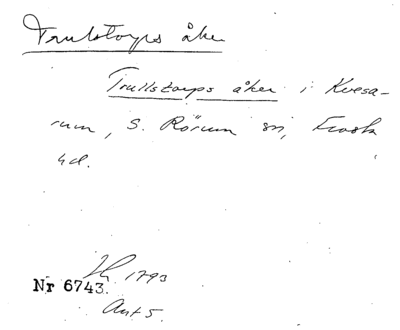 Trulstorps åker
Trullstorps åker i Kvesa-
rum, S. Rörum sn, Frosta
hd.
1793
Nr 6743.
Ant 5.